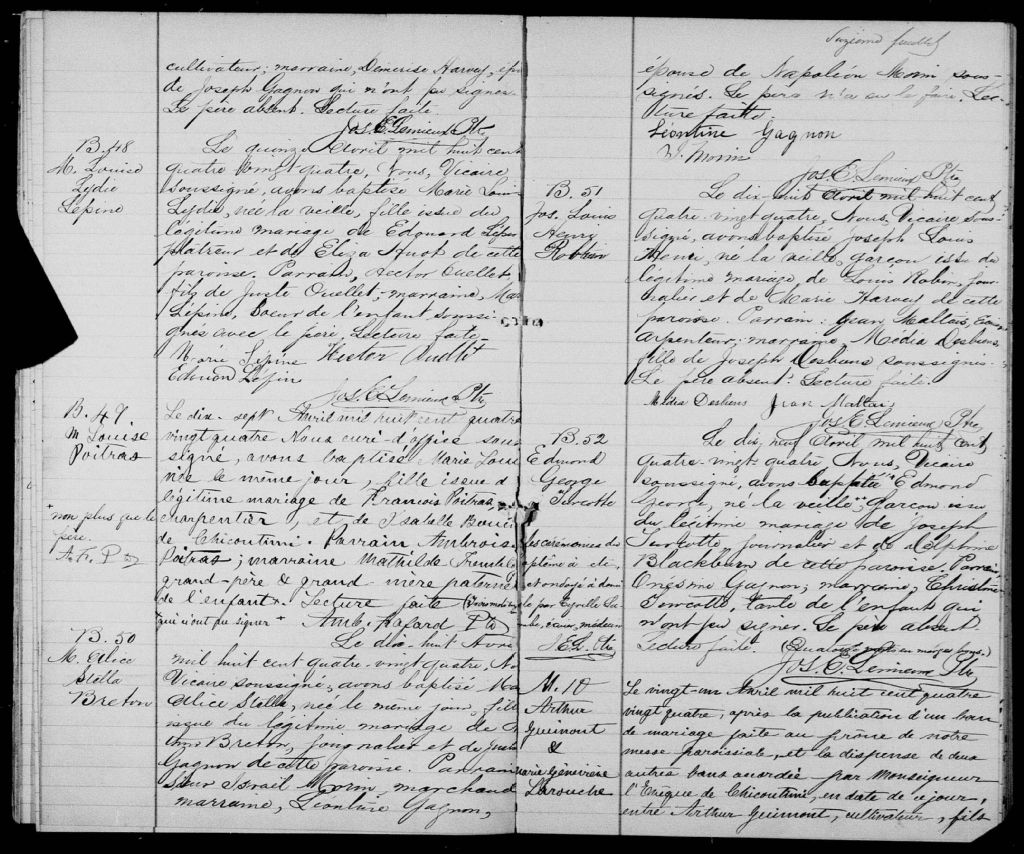 cultivateur; marraine, Démerise Harvey, épou
de Joseph Gagnon qui n'ont pu signer.
Le père absent. Lecture faite.
Jos. E. Lemieux Ptre
B. 48
M. Louise
Lydie
Lépine
Le quinze Avril mil huit cent
quatre vingt quatre, Nous, Vicaire
soussigné, avons baptisé Marie Loui
Lydie, née la veille, fille issue du
légitime mariage de Edouard Lépin
plâtreur et de Eliza Huot de cette
paroisse. Parrain, Hector Ouellet
fils de Juste Ouellet; marraine, Mar
Lépine, soeur de l'enfant soussi-
gnés avec le père. Lecture faite.
Marie Lépine Hector Ouellet
Edouard Lépin
Jos. E. Lemieux Ptre
B. 49.
M. Louise
Poitras
Le dix-sept Avril mil huit cent quatre
vingt quatre Nous curé d'office sous
signé, avons baptisé Marie Loui
née le même jour, fille issue d
légitime mariage de François Poitras
charpentier, et de Isabelle
de Chicoutimi. Parrain Ambrois
Poitras; marraine Mathilde Tremble
grand-père & grand mère paterne
de l'enfant. Lecture faite
qui n'ont pu signer + Amb. Fafard Ptre
+ non plus que le
père.
A. F. Ptre
B. 50
M. Alice
Stella
Breton
Le dix-huit Avri
mil huit cent quatre-vingt quatre, No
Vicaire soussigné, avons baptisé Ma
Alice Stella, née le même jour, fill
issue du légitime mariage de
Breton, journalier et de
Gagnon de cette paroisse. Parrain
Sieur Israël Morin, marchand
marraine, Léontine Gagnon,
feuillet
épouse de Napoléon Morin sous-
signés. Le père n'a su le faire. Lec-
ture faite
Léontine Gagnon
Morin
Jos. E. Lemieux Ptre
B. 51
Jos. Louis
Henry
Le dix-huit Avril mil huit cent
quatre-vingt quatre, Nous, Vicaire sous-
signé, avons baptisé Joseph Louis
Henri, né la veille, garçon issu du
légitime mariage de Louis Robin, jour-
nalier et de Marie Harvey de cette
paroisse. Parrain: Jean Maltais,
arpenteur; marraine, Média Desbiens,
fille de Joseph Desbiens soussignés.
Le père absent. Lecture faite.
Média Desbiens Jean Maltais
Jos. E. Lemieux Ptre
B. 52
Edmond
George
Turcotte
Le dix neuf Avril mil huit cent
quatre-vingt-quatre, Nous, Vicaire
soussigné, avons baptisé Edmond
George, né la veille, garçon issu
du légitime mariage de Joseph
Turcotte journalier et de Delphine
Blackburn de cette paroisse. Parrain
Onésime Gagnon; marraine, Christine
Turcotte, tante de l'enfant qui
n'ont pu signer. Le père absent
Lecture faite.
Jos. E. Lemieux Ptre
Les cérémonies du
aptême à
et ondoyé à domi
le par Cyrille
médecin
J.E.L. Ptre
M. 10
Arthur
Guimont
&
Marie Geneviève
Larouche
Le vingt-un Avril mil huit cent quatre
vingt quatre, après la publication d'un ban
de mariage faite au prône de notre
messe paroissiale, et la dispense de deux
autres bans accordée par Monseigneur
l'Evêque de Chicoutimi, en date de ce jour,
entre Arthur Guimont, cultivateur, fils